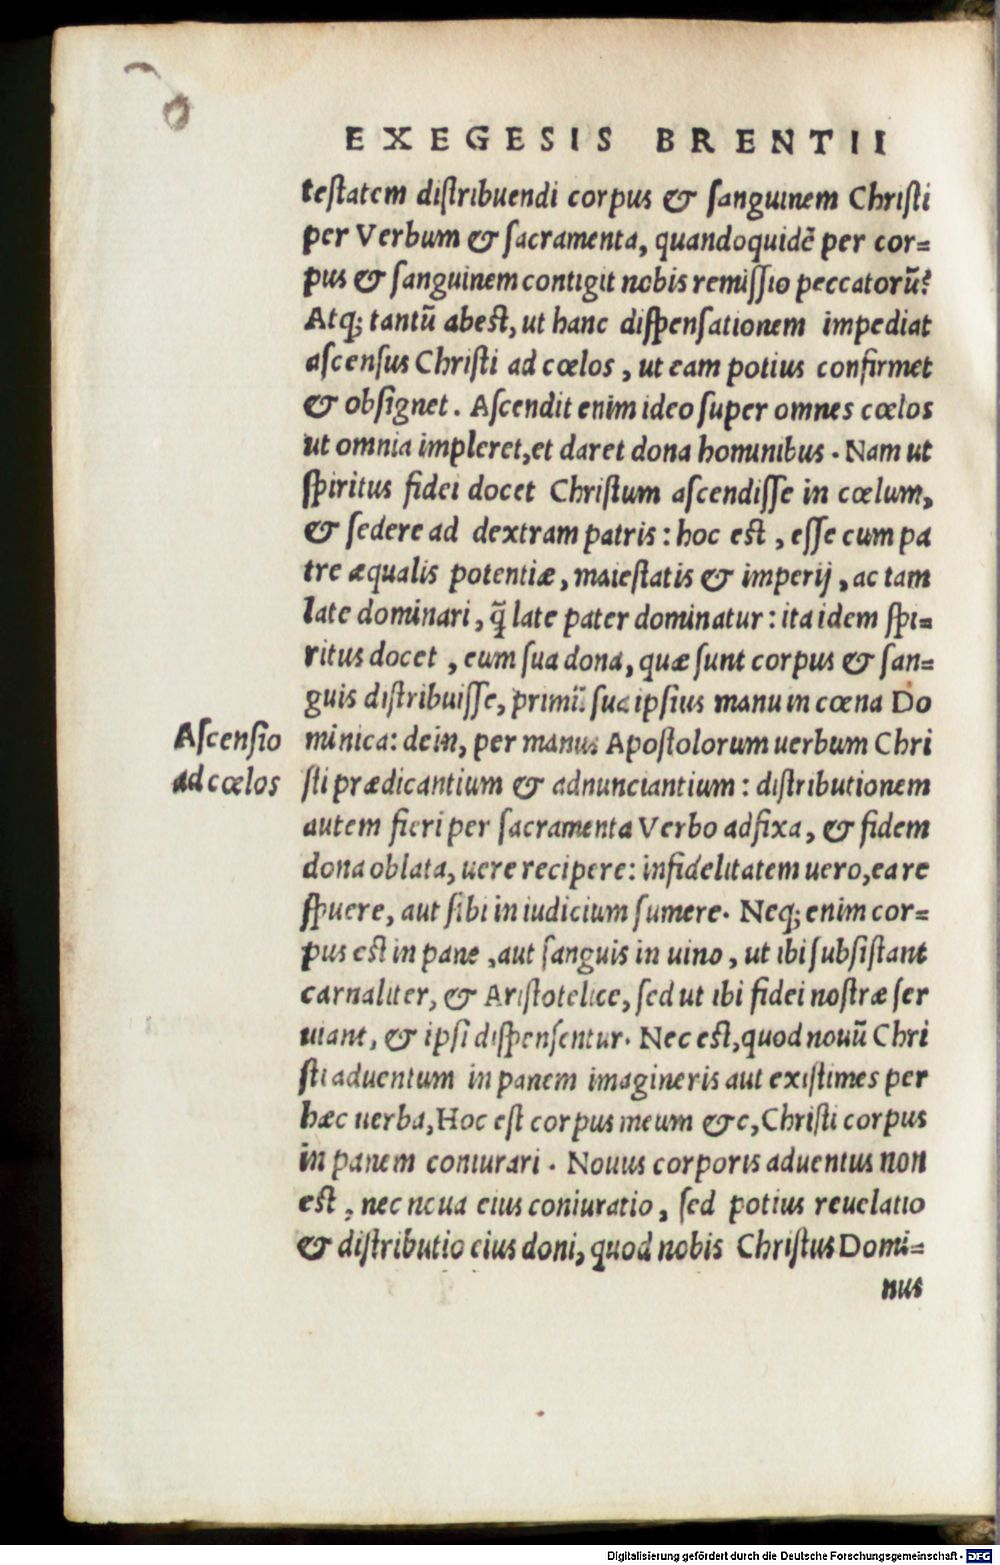 EXEGESIS BRENTII
teſtatem diſtribuendi corpus & ſanguinem Chriſti
per Verbum & ſacramenta, quandoquidẽ per cor=
pus & ſanguinem contigit nobis remiſſio peccatorũ?
Atq; tantũ abeſt, ut hanc diſpenſationem impediat
aſcenſus Chriſti ad cœlos, ut eam potius confirmet
& obſignet. Aſcendit enim ideo ſuper omnes cœlos
ut omnia impleret, et daret dona hominibus. Nam ut
ſpiritus fidei docet Chriſtum aſcendiſſe in cœlum,
& ſedere ad dextram patris: hoc eſt, eſſe cum pa
tre æqualis potentiæ, maieſtatis & imperij, ac tam
late dominari, q̃ late pater dominatur: ita idem ſpi=
ritus docet, eum ſua dona, quæ ſunt corpus & ſan=
guis diſtribuiſſe, primũ ſua ipſius manu in cœna Do
Aſcenſio
ad cœlos
minica: dein, per manus Apoſtolorum uerbum Chri
ſti prædicantium & adnunciantium: diſtributionem
autem fieri per ſacramenta Verbo adfixa, & fidem
dona oblata, uere recipere: infidelitatem uero, ea re
ſpuere, aut ſibi in iudicium ſumere. Neq; enim cor=
pus eſt in pane, aut ſanguis in uino, ut ibi ſubſiſtant
carnaliter, & Ariſtotelice, ſed ut ibi fidei noſtræ ſer
uiant, & ipſi diſpenſentur. Nec eſt, quod nouũ Chri
ſti aduentum in panem imagineris aut exiſtimes per
hæc uerba, Hoc eſt corpus meum &c, Chriſti corpus
in panem coniurari. Nouus corporis aduentus non
eſt, nec noua eius coniuratio, ſed potius reuelatio
& diſtributio eius doni, quod nobis Chriſtus Domi=
nus
Digitalisierung gefördert durch die Deutsche Forschungsgemeinschaft - DFG